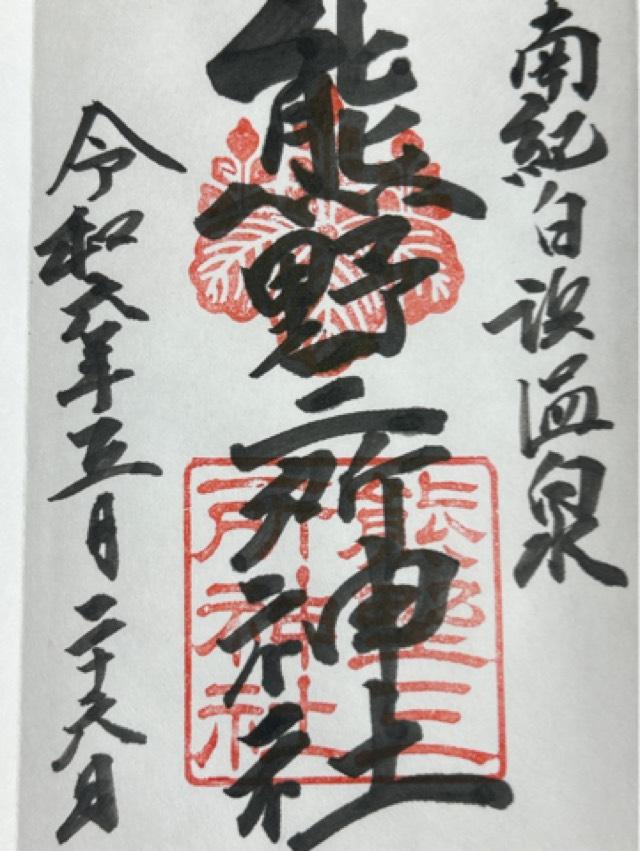 南紀白浜温泉
熊野三所神社
令和六年五月二十六日
熊野三
所神社